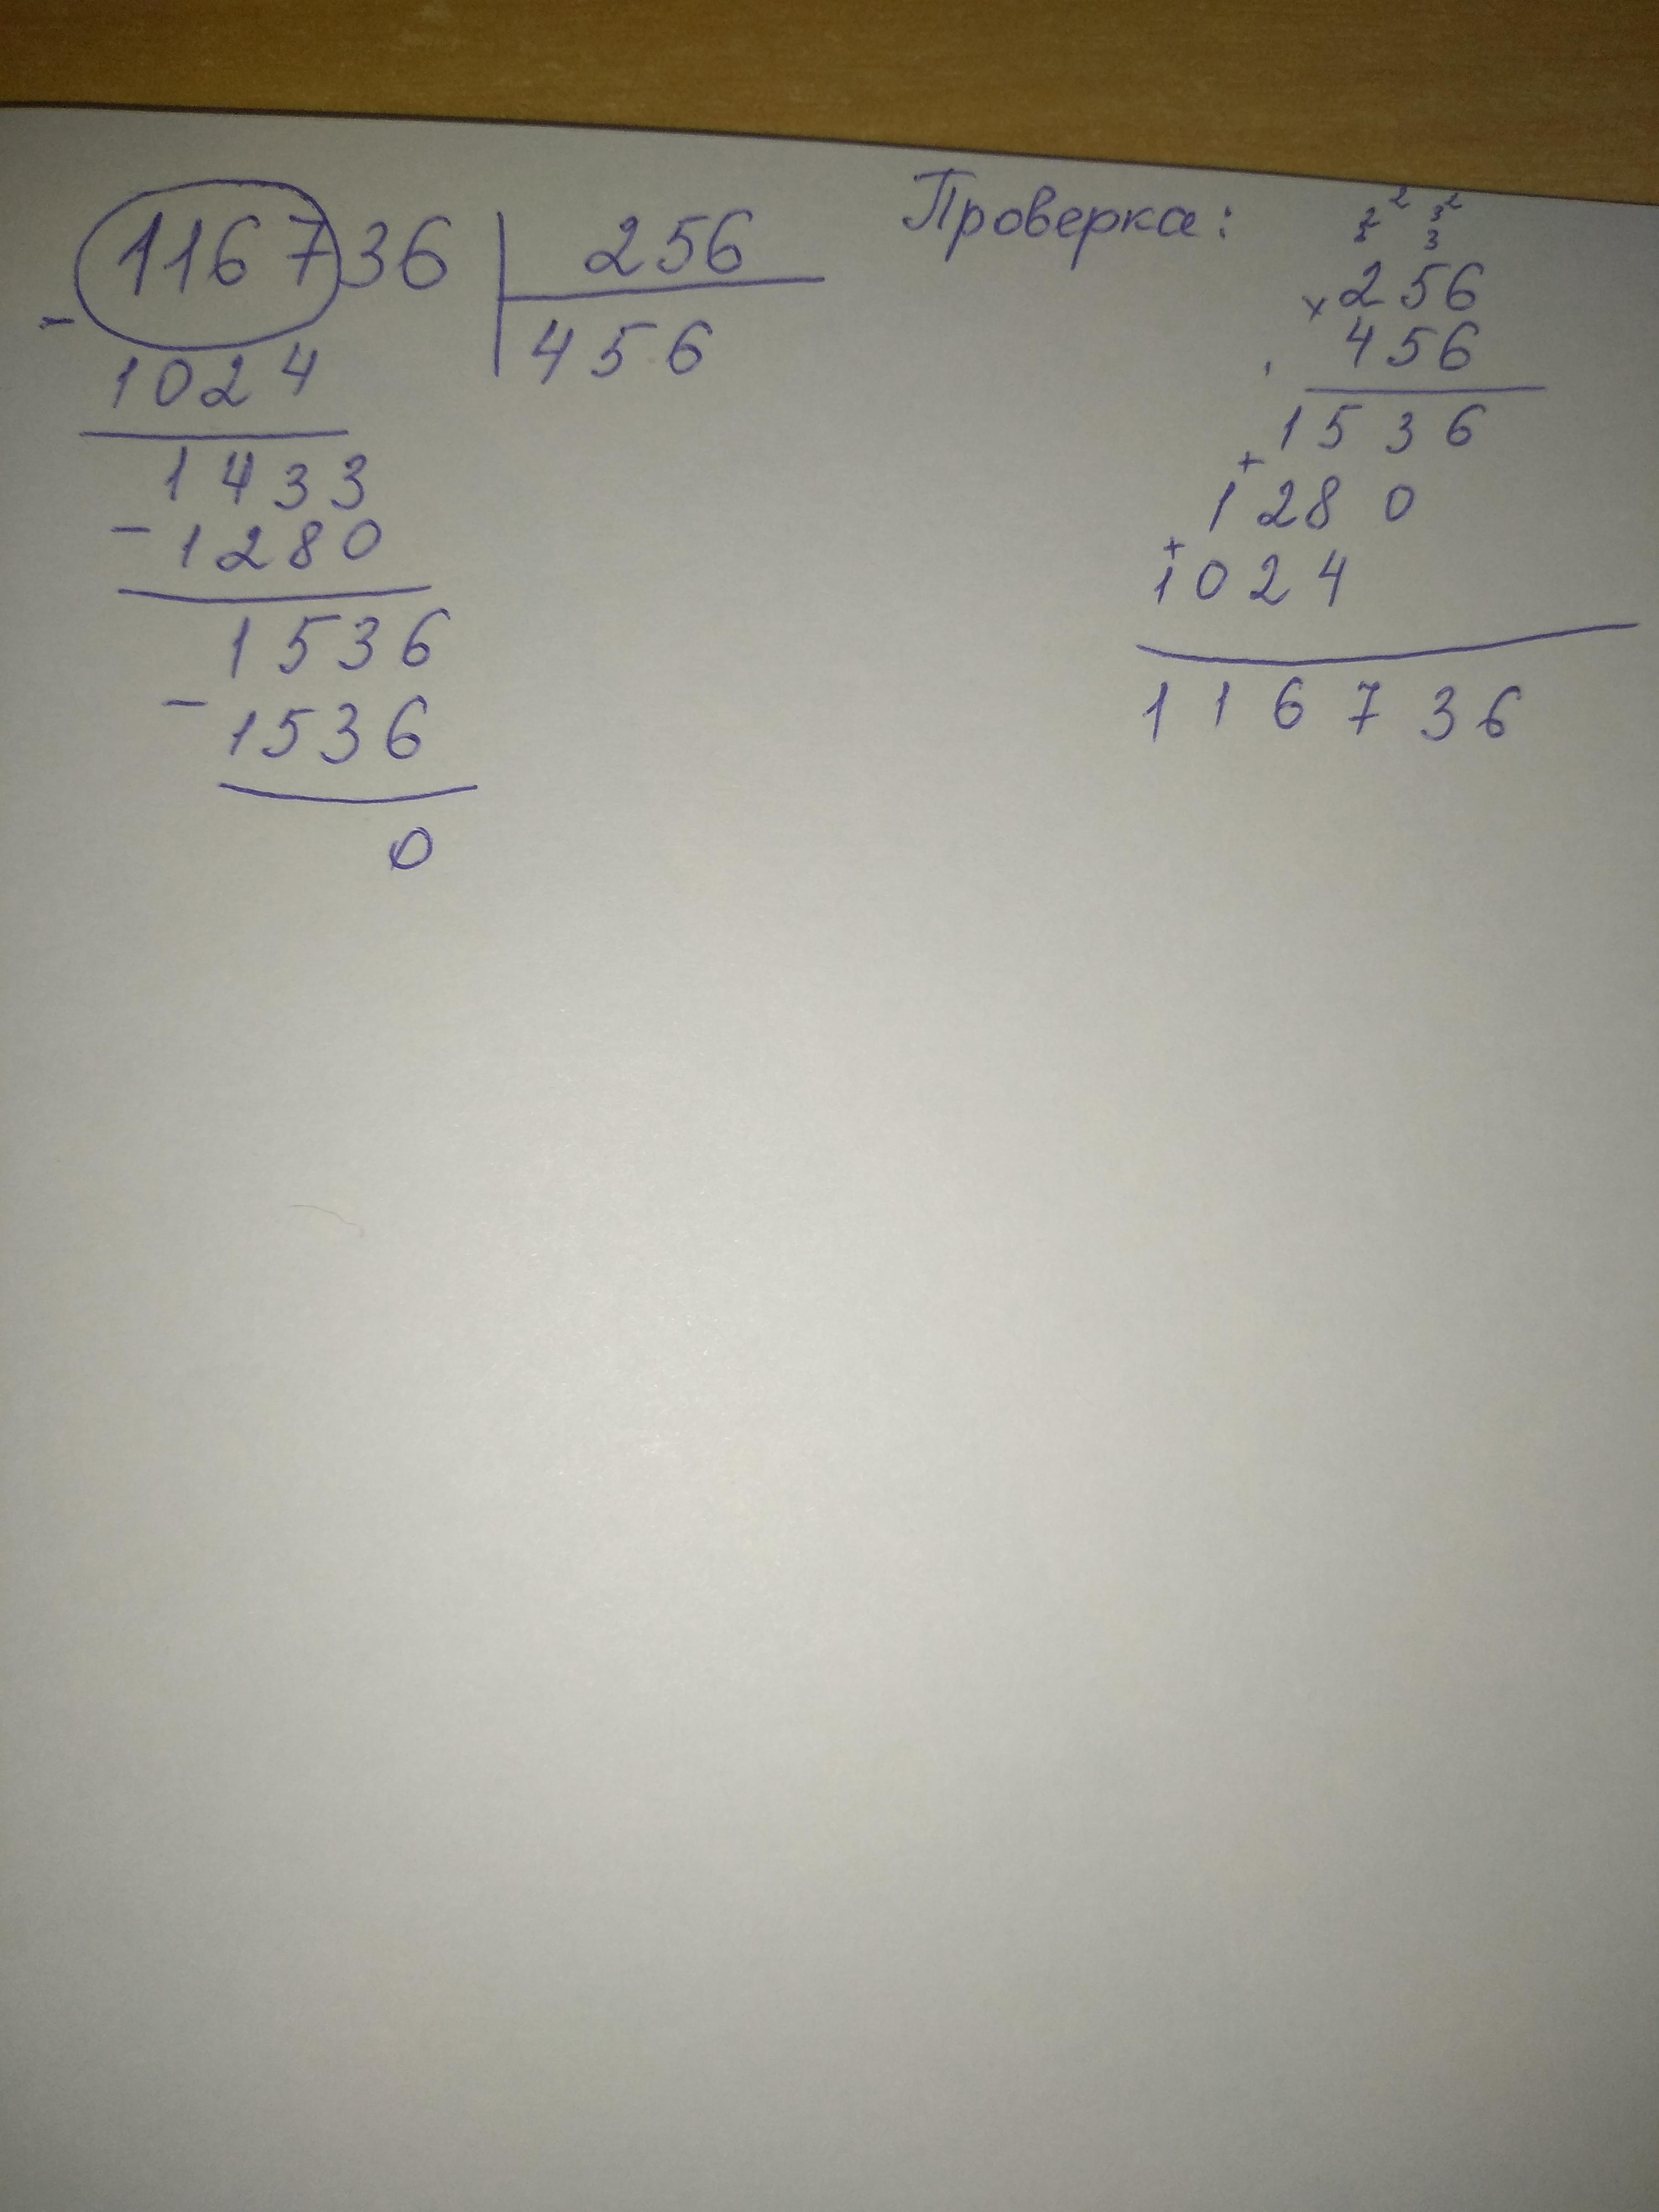 116736 256
- 456
1024
1433
- 1280
1536
- 1536
0
Проверка:
2 2 3 2
3
256
× 456
1536
+ 1280
+ 1024
116736